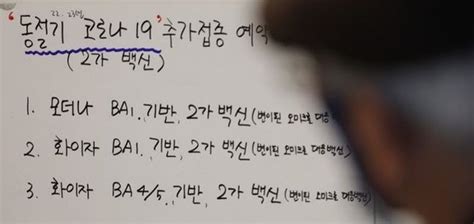 22. 23절
'동절기 코로나 19' 추가접종 예약
(2가 백신)
1. 모더나 BA1. 기반, 2가 백신(변이된 오미크론 대응
2. 화이자 BA1. 기반, 2가 백신(변이된 오미크론 대응백신)
3. 화이자 BA4/5. 기반, 2가 백신 (변이된 오미크론 대응백신)